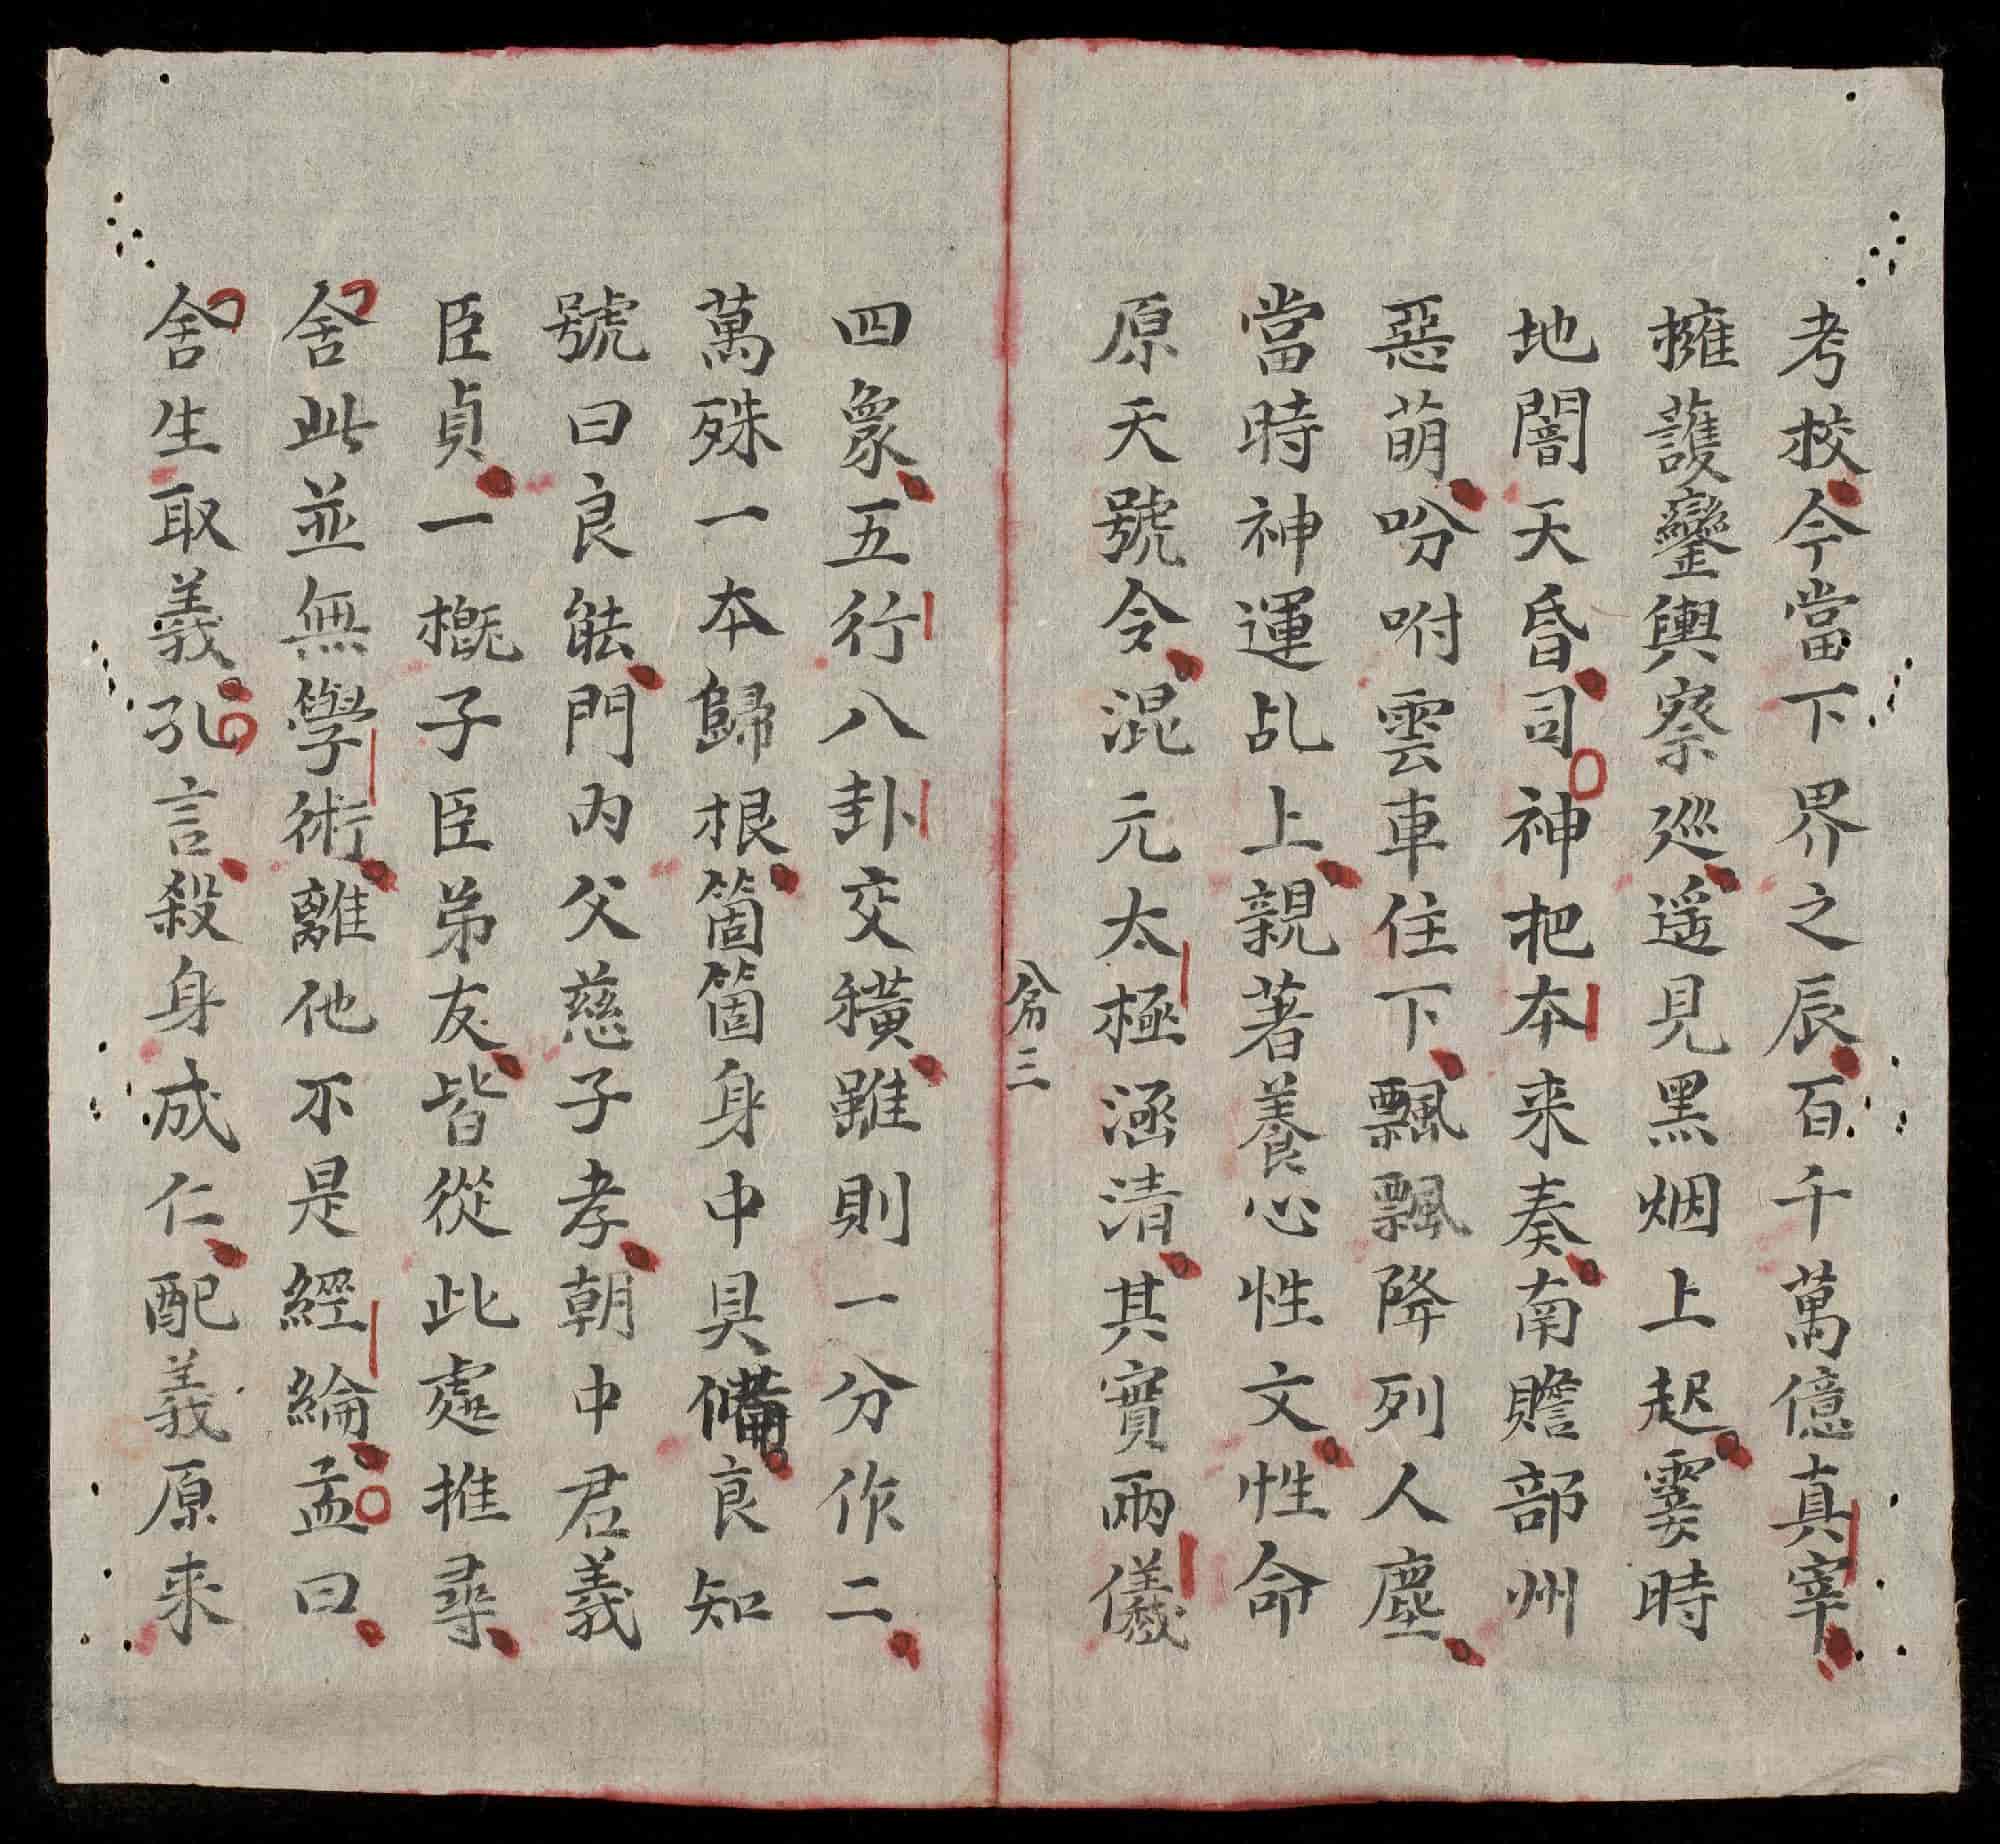 考校今當下界之辰百千萬億真宰
擁護鑾輿察巡遥見黑烟上起霎時
地闇天昏司神把本来奏南贍部州
惡萌吩咐雲車住下飄飄降列人塵
當時神運乩上親著養心性文性命
原天號令混元太極涵清其實兩儀
四象五行八卦交橫雖則一分作二
萬殊一本歸根箇箇身中具備良知
號曰良能門内父慈子孝朝中君義
臣貞一概子臣弟友皆從此處推尋
舍此並無學術離他不是經綸孟曰
舍生取義孔言殺身成仁配義原来